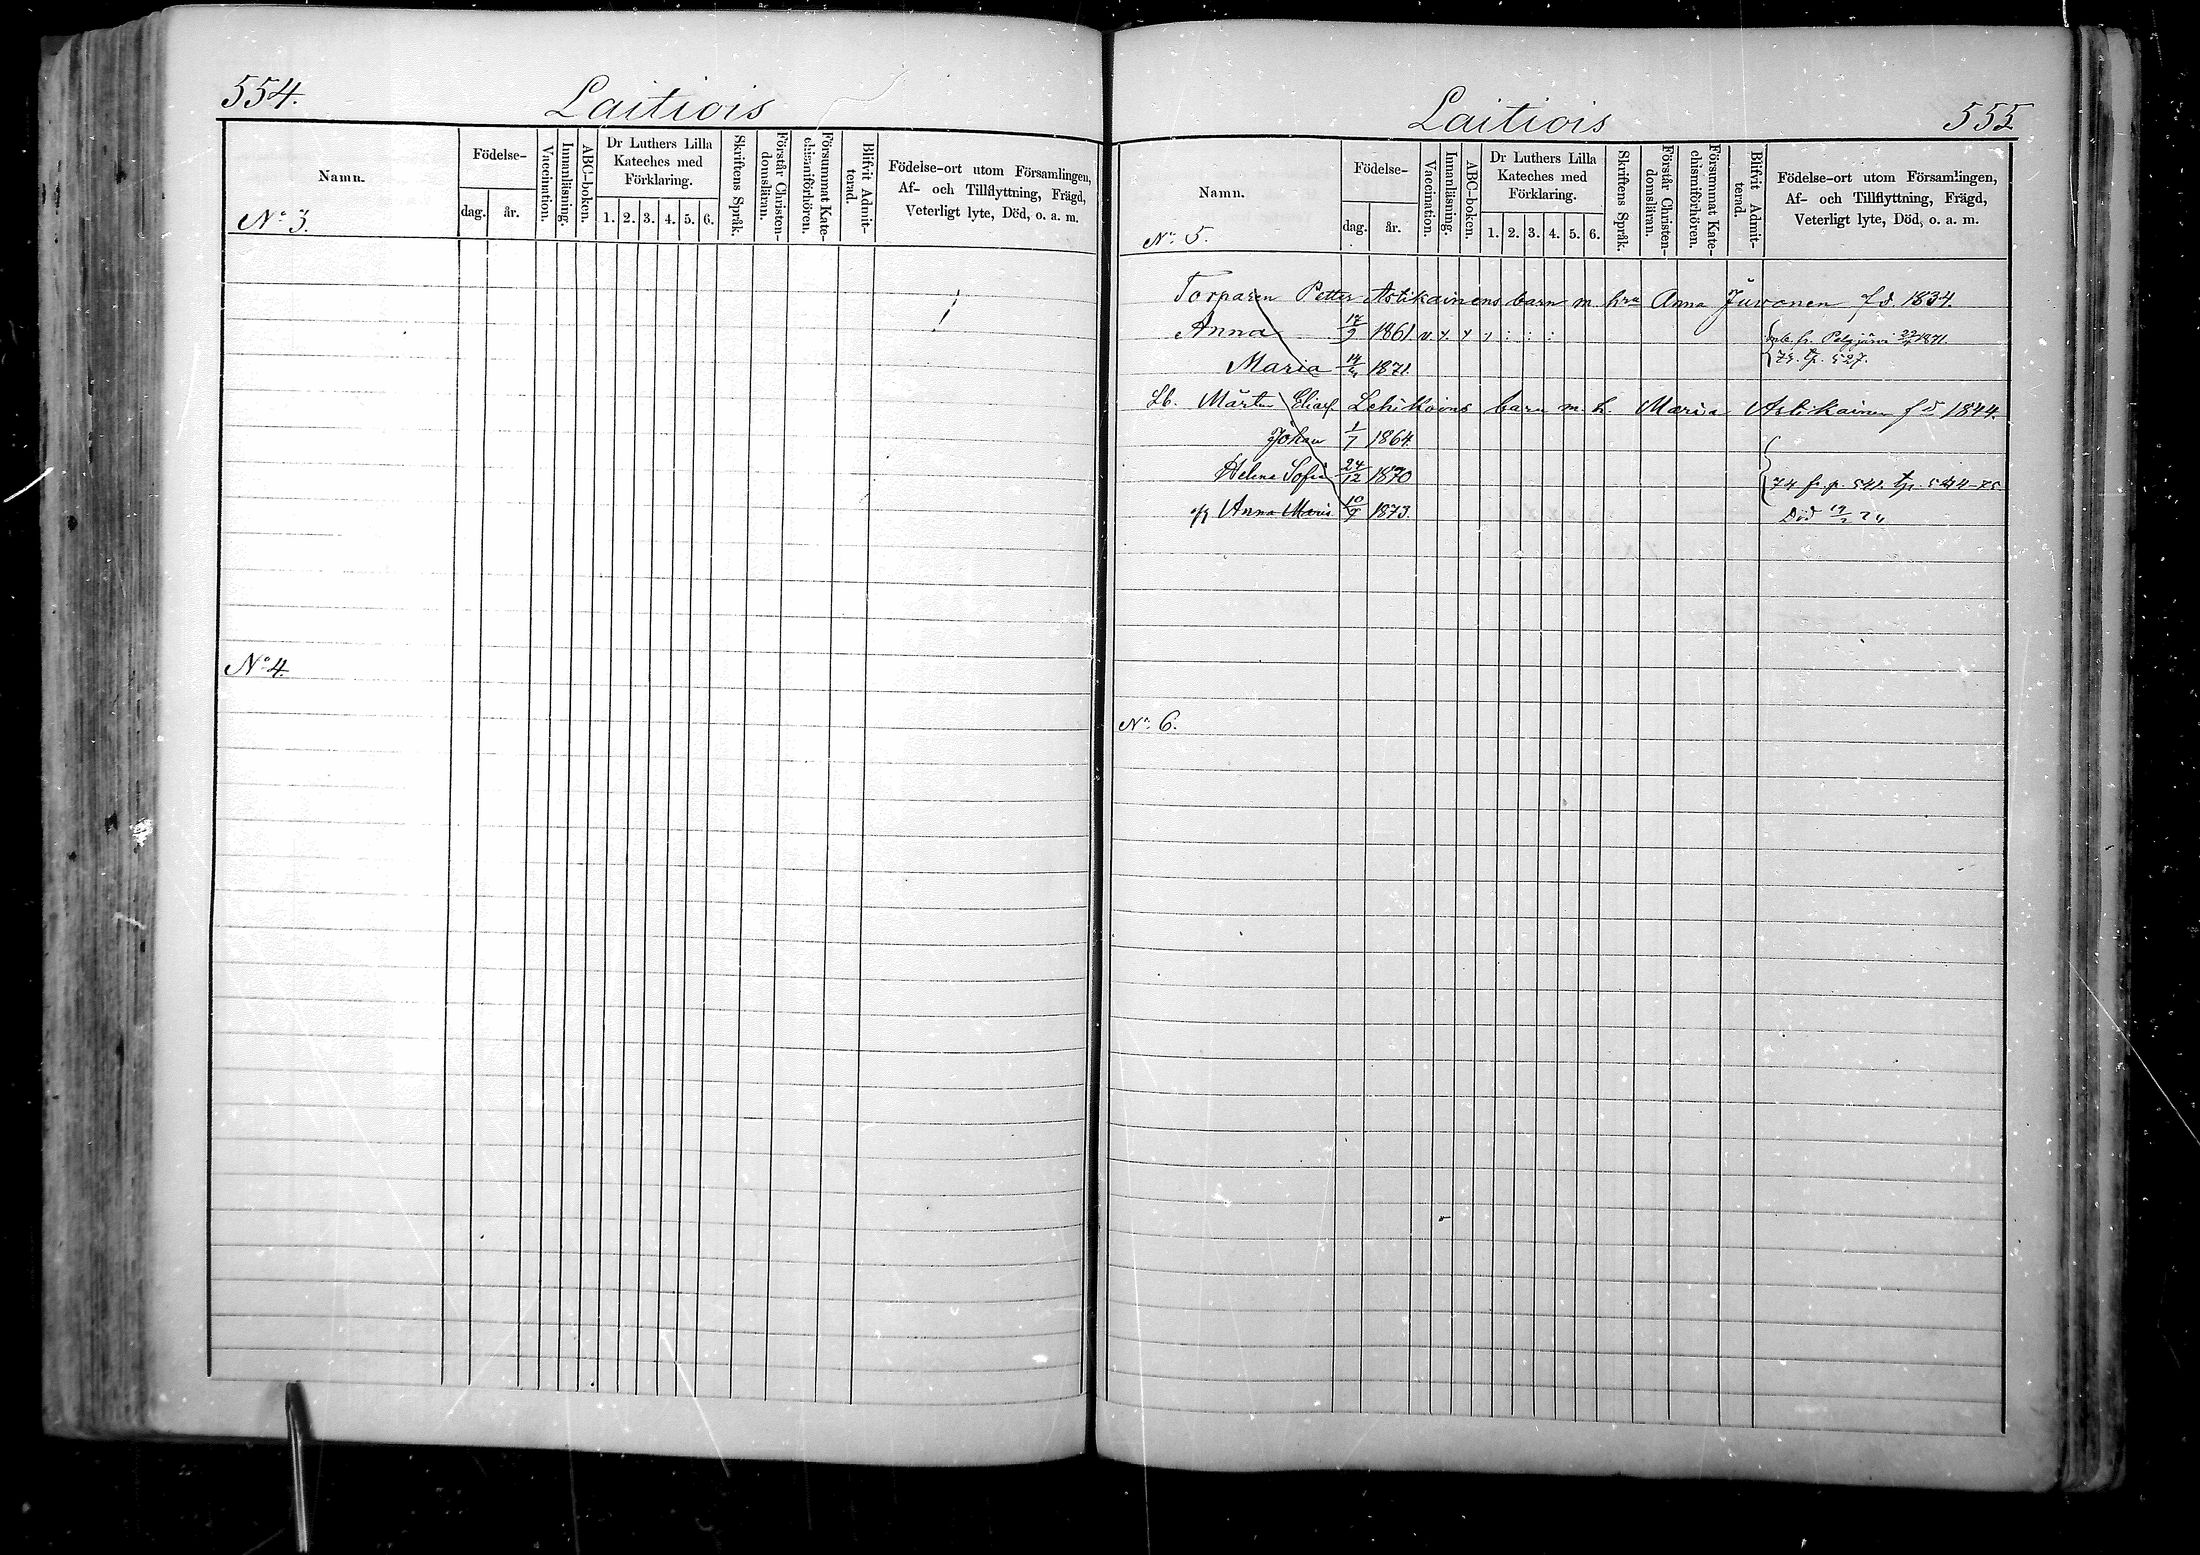 554.
Laitiois
Namn.
Födelse-
dag.
år.
Vaccination.
Innanläsning.
ABC-boken.
Dr Luthers Lilla
Kateches med
Förklaring.
1. 2. 3. 4. 5. 6.
Skriftens Språk.
Förstår Christen-
domsläran.
Försummat Kate-
chismiförhören.
Blifvit Admit-
terad.
Födelse-ort utom Församlingen,
Af- och Tillflyttning, Frägd,
Veterligt lyte, Död, o. a. m.
No 3.
No 4.
Laitiois
555
Namn.
Födelse-
dag.
år.
Vaccination.
Innanläsning.
ABC-boken.
Dr Luthers Lilla
Kateches med
Förklaring.
1. 2. 3. 4. 5. 6.
Skriftens Språk.
Förstår Christen-
domsläran.
Försummat Kate-
chismiförhören.
Blifvit Admit-
terad.
Födelse-ort utom Församlingen,
Af- och Tillflyttning, Frägd,
Veterligt lyte, Död, o. a. m.
No 5.
Torparen Petter Astikainens barn m. hru Anna Juvonen fd. 1834.
Anna 17/9 1861 fr. Pelgjärvi 1871.
Maria 1871. 527.
Lb. Mårten Eliass. Lehikoins barn m. h. Maria Astikainen fd 1844.
Johan 1/7 1864.
Helena Sofia 24/12 1870 74 fr. p. 541. 544-75
Anna Maria 1873. Död
No 6.